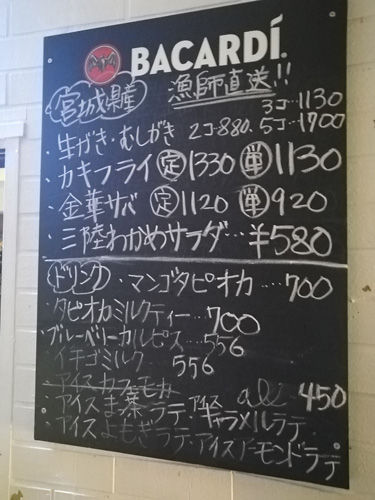 BACARDÍ
宮城県産 漁師直送!!
3コ…1130
・生がき・むしがき 2コ・880. 5コ…1700
・カキフライ 定 1330 単 1130
・金華サバ 定 1120 単 920
・三陸わかめサラダ…¥580
ドリンク ・マンゴタピオカ…700
・タピオカミルクティー…700
・ブルーベリーカルピス…556
・イチゴミルク 556
・アイスカフェモカ all 450
・アイス抹茶ラテ・アイスキャラメルラテ
・アイスよもぎラテ・アイスアーモンドラテ